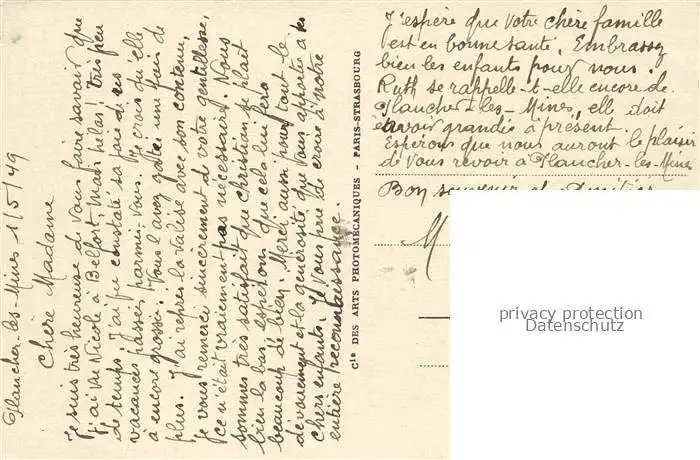 Plancher-les-Mines 1/5/49
Chère Madame
Je suis très heureuse de vous faire savoir que
j'ai vu Nicole à Belfort, mais hélas! très peu
de temps. J'ai pu constaté sa joie de ses
vacances passés parmi vous. Je crois qu'elle
a encore grossie. Vous l'avez gatée une fois de
plus. J'ai repris la valise avec son contenu,
Je vous remercie sincèrement de votre gentillesse,
ce n'était vraiment pas nécessaire. Nous
sommes très satisfait que christian se plait
bien la bas, espérons que cela lui fera
beaucoup de bien. Merci aussi pour tout le
dévouement et la générosité que vous apportée à
chers enfants. Je vous prie de croire à notre
entière reconnaissance.
Cie DES ARTS PHOTOMECANIQUES - PARIS-STRASBOURG
J'espère que votre chère famille
est en bonne santé. Embrassez
bien les enfants pour nous.
Ruth se rappelle-t-elle encore de
Plancher-les-Mines, elle doit
avoir grandie à présent.
Espérons que nous auront le plaisir
de vous revoir à Plancher-les-Mines
Bon souvenir et Amitiés
M
privacy protection
Datenschutz